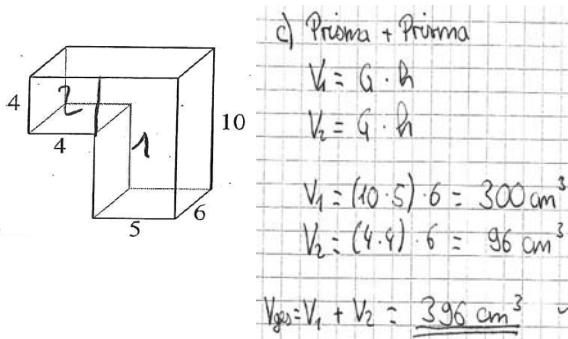 4
2
4
1
10
5
6
c) Prisma + Prisma
V₁ = G · h
V₂ = G · h
V₁ = (10·5)·6 = 300 cm³
V₂ = (4·4)·6 = 96 cm³
Vges = V₁ + V₂ = 396 cm³ ✓